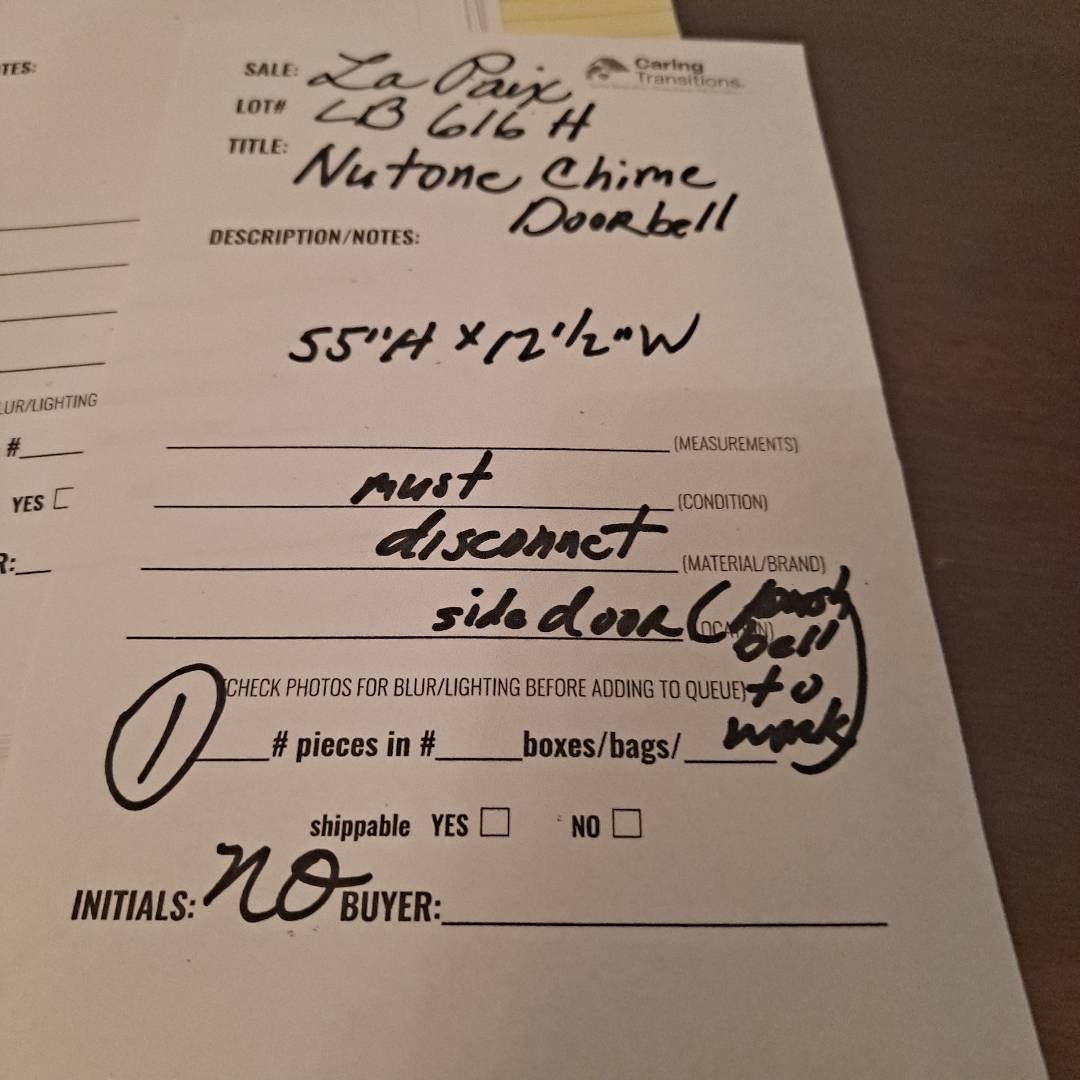 TES:
SALE: La Paix
Caring
Transitions.
LOT# LB 616 H
TITLE: Nutone Chime
Doorbell
DESCRIPTION/NOTES:
55"H x 12 1/2" W
(MEASUREMENTS)
LUR/LIGHTING
#
must (CONDITION)
YES
disconnet (MATERIAL/BRAND)
R:
side door (push
bell
(CHECK PHOTOS FOR BLUR/LIGHTING BEFORE ADDING TO QUEUE) to
1 # pieces in # boxes/bags/ work)
shippable YES NO
INITIALS: NO BUYER: